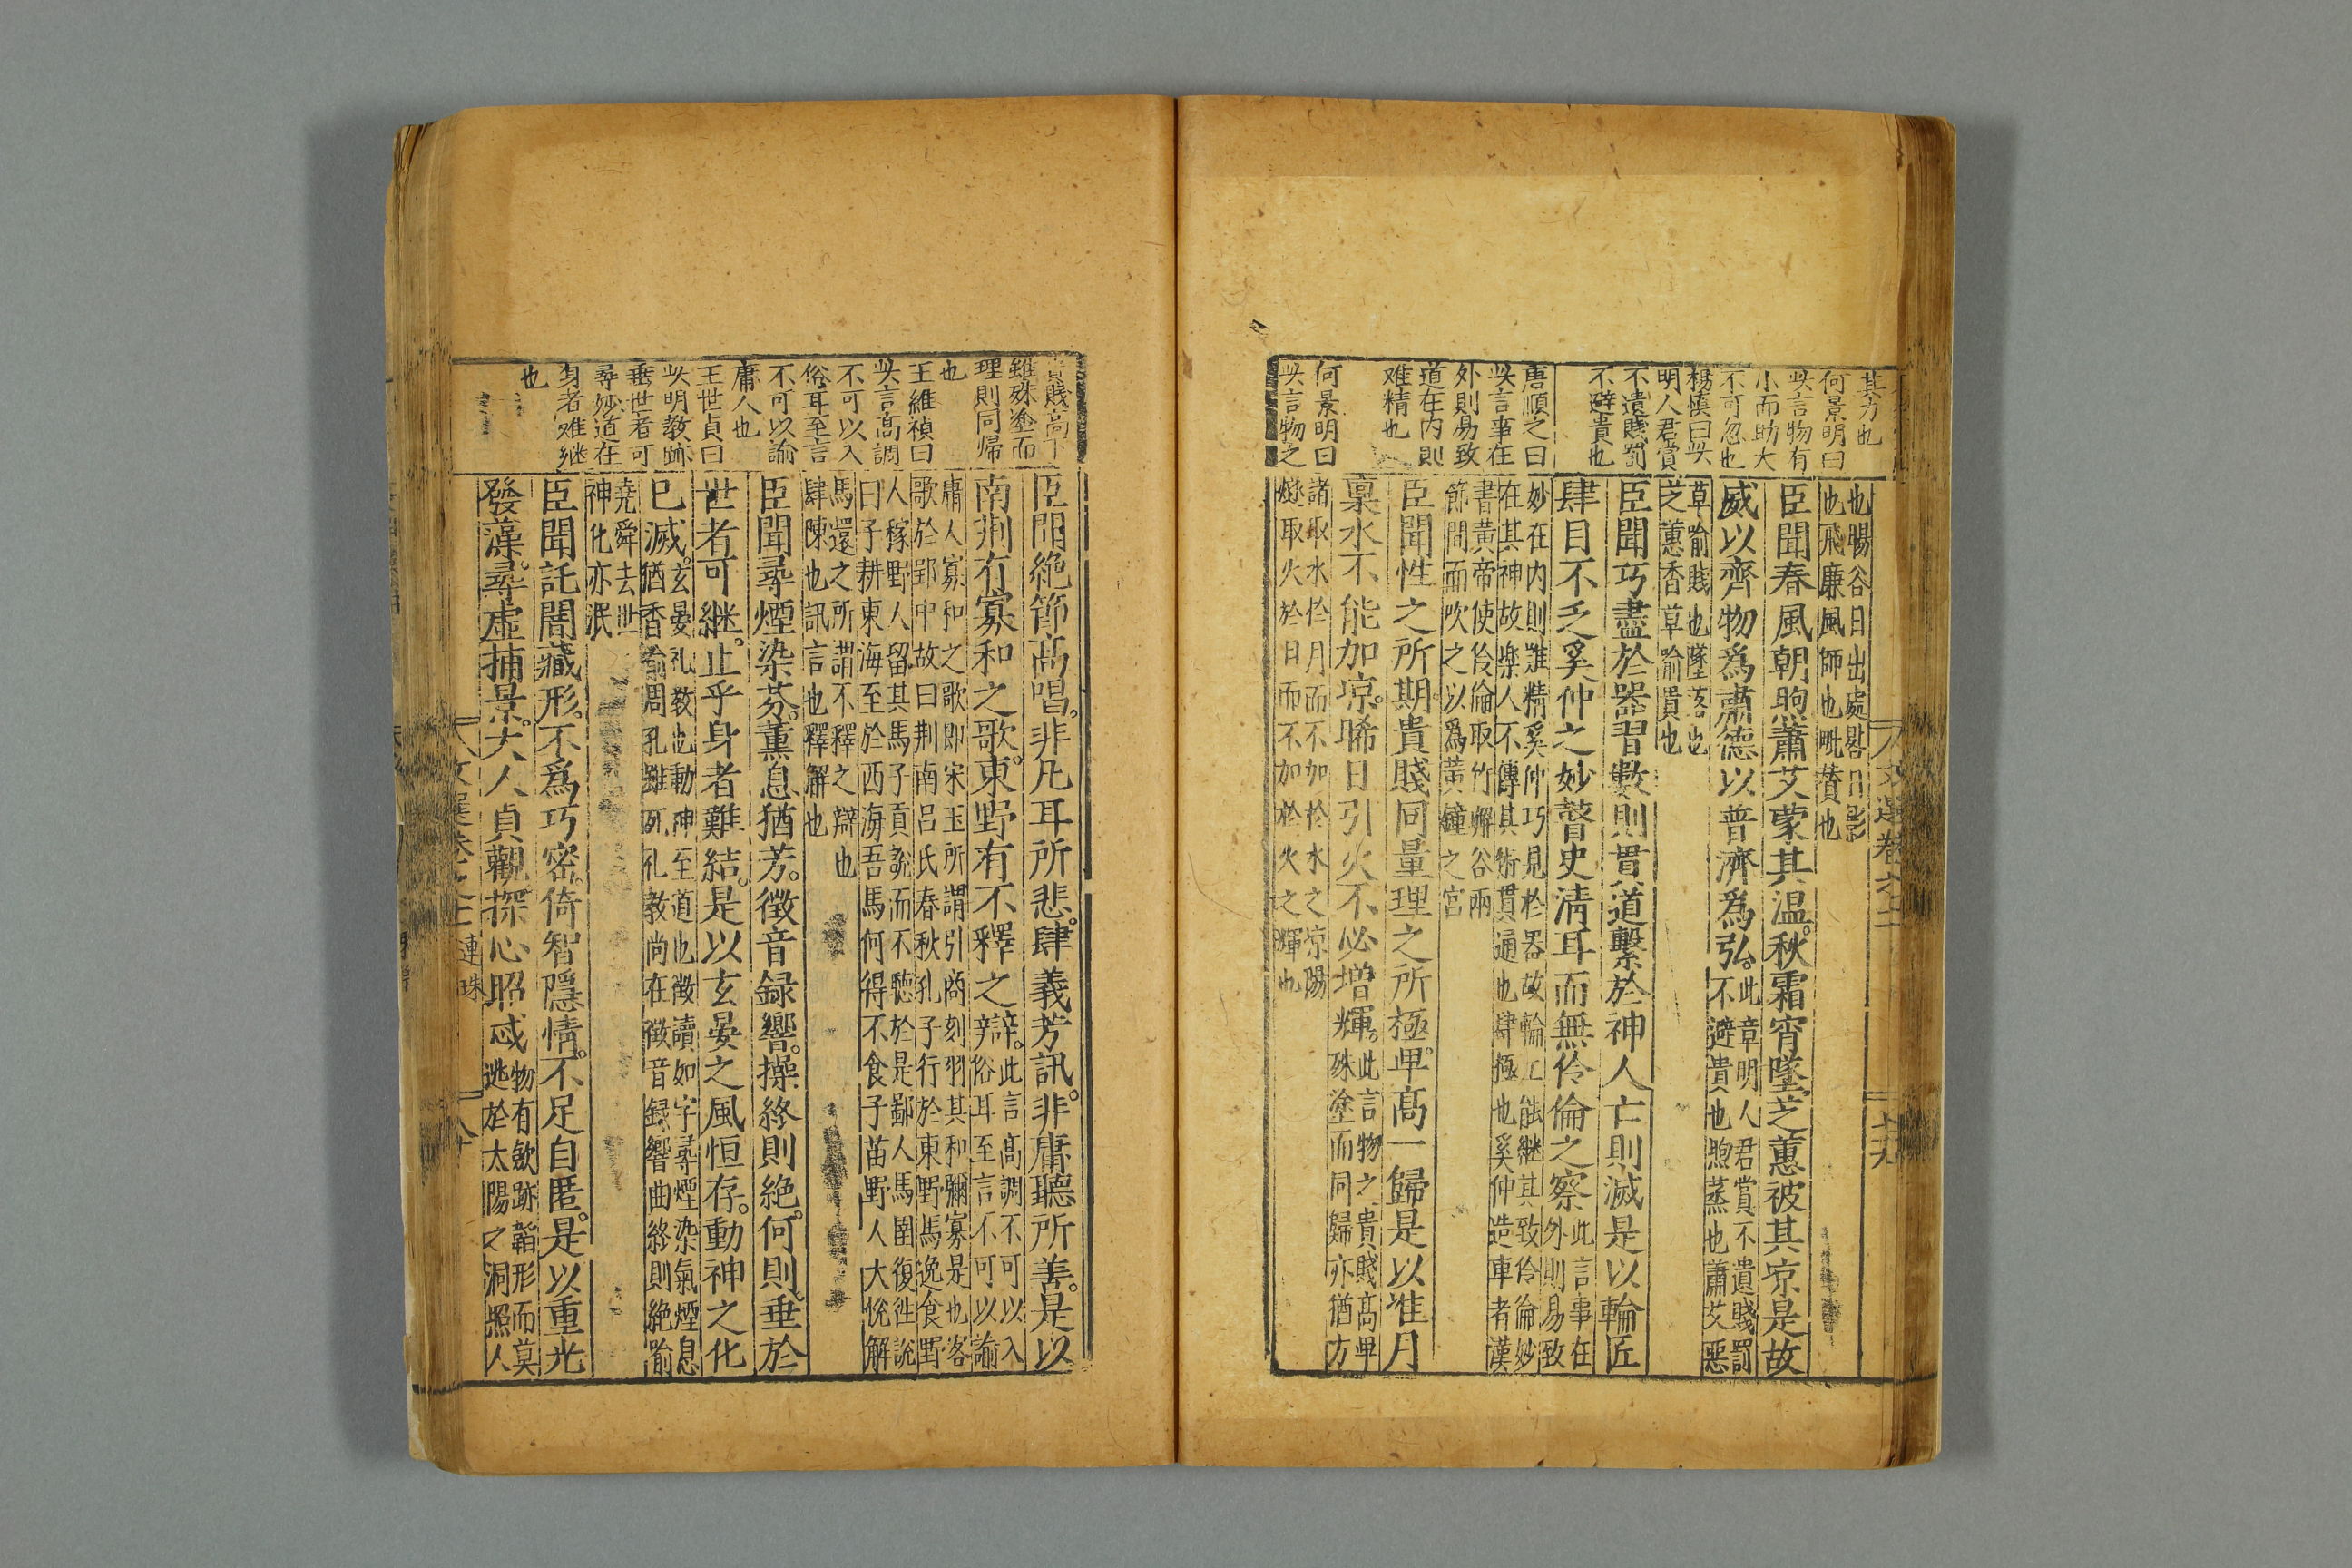 其方也
何景明曰
此言物有
小而助大
不可忽也
楊慎曰此
明人君賞
不遺賤罰
不避貴也
唐順之曰
此言事在
外則易致
道在內則
难精也
何景明曰
此言物之
也暘谷日出處晷日影
也飛廉風師也毗賛也
臣聞春風朝煦蕭艾蒙其温。秋霜宵墜芝蕙被其凉是故
威以齊物爲肅德以普濟爲弘。此章明人君賞不遺賤罰
不避貴也煦蒸也蕭艾惡
草喻賤也墜落也
芝蕙香草喻貴也
臣聞巧盡於器習數則貫道繫於神人亡則滅是以輪匠
肆目不乏奚仲之妙瞽史淸耳而無伶倫之察此言事在
外則易致
妙在内則難精奚仲巧見於器故輪工能継其致伶倫妙
在其神故樂人不傳其術貫通也肆極也奚仲造車者漢
書黄帝使伶倫取竹嶰谷兩
節間而吹之以爲黃鐘之宮
臣聞性之所期貴賤同量理之所極卑髙一歸是以准月
禀水不能加凉。晞日引火不必增輝。此言物之貴賤髙卑
殊塗而同歸亦猶方
諸取水於月而不加於水之凉陽
燧取火於日而不加於火之輝也
文選卷之十二
七十九
貴賤高下
雖殊塗而
理則同帰
也
王維禎曰
此言髙調
不可以入
俗耳至言
不可以諭
庸人也
王世貞曰
此明教跡
垂世者可
尋妙道在
身者难継
也
臣聞絶節髙唱。非凡耳所悲。肆義芳訊。非庸聽所善。是以
南荆有寡和之歌。東野有不釋之辯。此言髙調不可以入
俗耳至言不可以諭
庸人寡和之歌即宋玉所謂引商刻羽其和彌寡是也客
歌於郢中故曰荆南呂氏春秋孔子行於東野馬逸食野
人稼野人留其馬子貢說而不聽於是鄙人馬圉復徃説
曰子耕東海至於西海吾馬何得不食子苗野人大悅解
馬還之所謂不釋之辯也
肆陳也訊言也釋解也
臣聞尋煙染芬。薰息猶芳。徵音録響。操終則絶。何則垂於
世者可継。止乎身者難結。是以玄晏之風恒存。動神之化
已滅。玄晏礼敎也動神至道也徵讀如字尋煙染氣煙息
猶香喻周孔雖死礼教尚在徵音録響曲終則絶喻
堯舜去世
神化亦泯
臣聞託闇藏形。不爲巧密。倚智隱情。不足自匿。是以重光
發藻。尋虚捕景。大人貞觀探心昭忒物有斂跡韜形而莫
逃於太陽之洞照人
文選卷之十二
連珠
八十